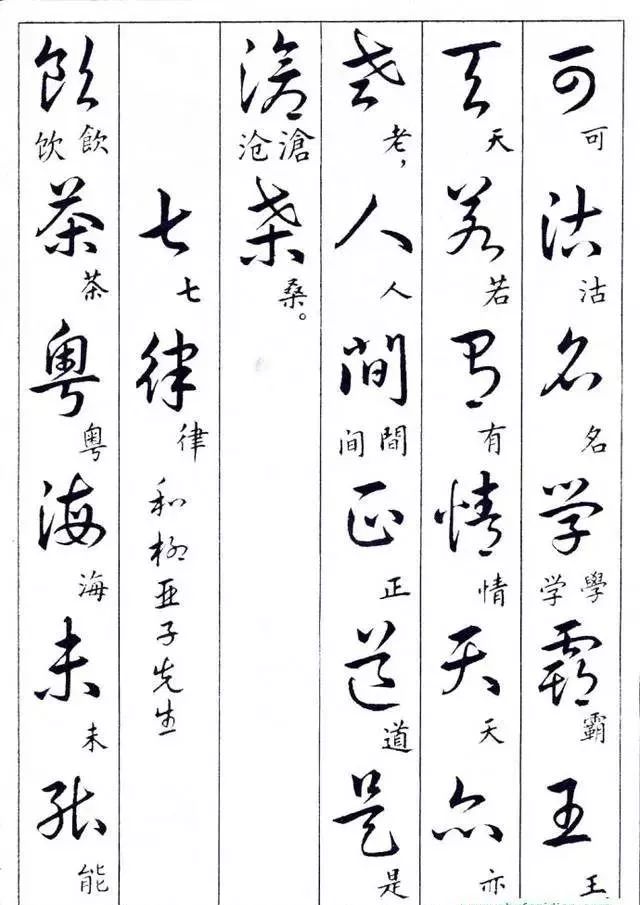 可沽名学霸王
可沽名學学霸王
天若有情天亦
天若有情天亦
老人间正道是
老，人間间正道是
沧桑
滄沧桑。
七律
七律
和柳亚子先生
饮茶粤海未能
飲饮茶粤海未能